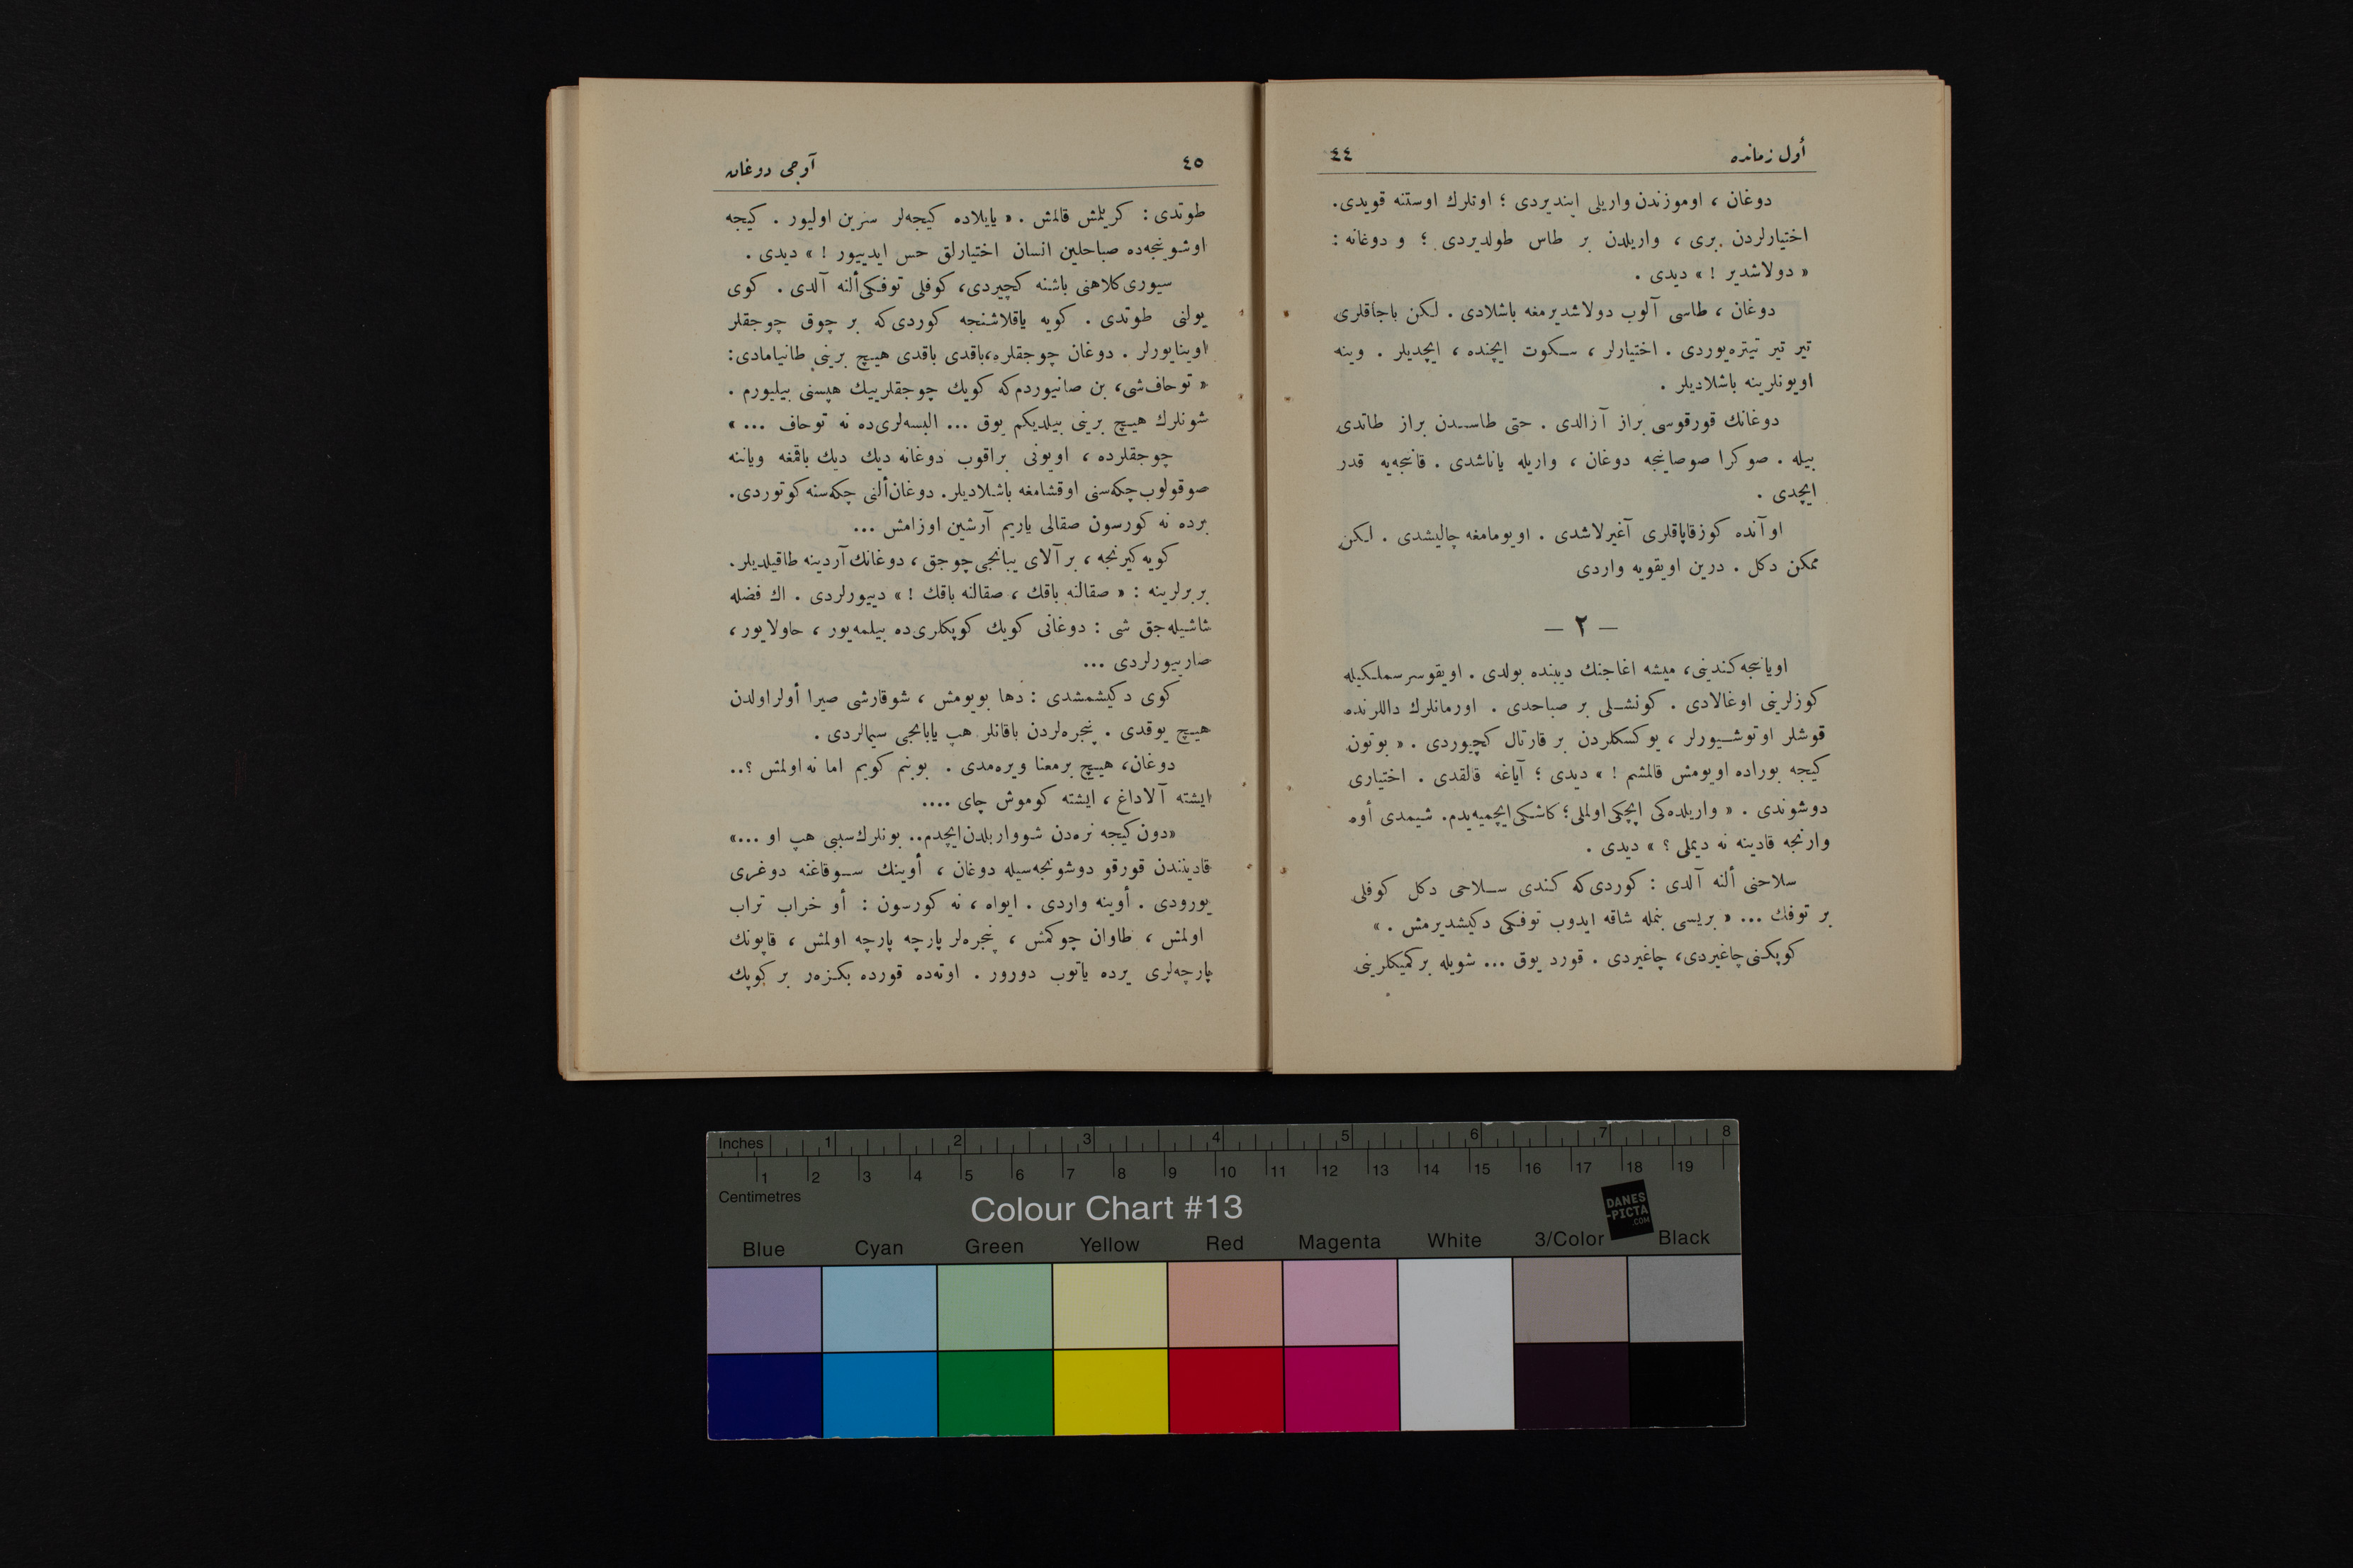 أول زمانده ٤٤
دوغان ، اوموزندن واریلی ایندیردی ؛ اوتلرك اوستنه قویدی.
اختیارلردن بری ، واریلدن بر طاس طولدیردی ؛ و دوغانه :
« دولاشدیر ! » دیدی .
دوغان ، طاسی آلوب دولاشدیرمغه باشلادی . لكن باجاقلری
تیر تیر تیتره‌یوردی . اختیارلر ، سكوت ایچنده ، ایچدیلر . وینه
اویونلرینه باشلادیلر .
دوغانك قورقوسی براز آزالدی . حتی طاسدن براز طاتدی
بیله . صوكرا صوصاینجه دوغان ، واریله یاناشدی . قانیجه‌یه قدر
ایچدی .
او آنده كوزقاپاقلری آغیرلاشدی . اویومامغه چالیشدی . لكن
ممكن دكل . درین اویقویه واردی
— ٢ —
اویانیجه كندینی، میشه اغاجنك دیبنده بولدی . اویقوسرسملكیله
كوزلرینی اوغالادی . كونشلی بر صباحدی . اورمانلرك داللرنده
قوشلر اوتوشیورلر ، یوكسكلردن بر قارتال كچیوردی . « بوتون
كیجه بوراده اویومش قالمشم ! » دیدی ؛ آیاغه قالقدی . اختیاری
دوشوندی . « واریلده‌كی ایچكی اولملی؛ كاشكی ایچمیه‌یدم. شیمدی أوه
وارنجه قادینه نه دیملی ؟ » دیدی .
سلاحنی ألنه آلدی : كوردی‌كه كندی سلاحی دكل كوفلی
بر توفك ... « بریسی بنمله شاقه ایدوب توفكی دكیشدیرمش . »
كوپكنی چاغیردی، چاغیردی . قورد یوق ... شویله بر كمیكلرینی
٤٥ آوجی دوغان
طوتدی : كریلمش قالمش . « یایلاده كیجه‌لر سرین اولیور . كیجه
اوشوینجه‌ده صباحلین انسان اختیارلق حس ایدییور ! » دیدی .
سیوری‌كلاهنی باشنه كچیردی، كوفلی توفكی ألنه آلدی . كوی
یولنی طوتدی . كویه یاقلاشنجه كوردی‌كه بر چوق چوجقلر
اوینایورلر . دوغان چوجقلره، باقدی باقدی هیچ برینی طانیامادی :
« توحاف‌شی، بن صانیوردم‌كه كویك چوجقلرییك هپسنی بیلیورم .
شونلرك هیچ برینی بیلدیكم یوق ... البسه‌لری‌ده نه توحاف ... »
چوجقلرده ، اویونی براقوب دوغانه دیك دیك باقمغه ویاننه
صوقولوب چكه‌سنی اوقشامغه باشلادیلر. دوغان ألنی چكه‌سنه كوتوردی.
برده نه كورسون صقالی یاریم آرشین اوزامش ...
كویه كیرنجه ، بر آلای یبانجی چوجق ، دوغانك آردینه طاقیلدیلر.
بربرلرینه : « صقالنه باقك ، صقالنه باقك ! » دییورلردی . اك فضله
شاشیله‌جق شی : دوغانی كویك كوپكلری‌ده بیلمه‌یور ، حاولایور ،
صارییورلردی ...
كوی دكیشمشدی : دها بویومش ، شوقارشی صیرا أولر اولدن
هیچ یوقدی . پنجره‌لردن باقانلر هپ یابانجی سیمالردی .
دوغان، هیچ برمعنا ویره‌مدی . بوبنم كویم اما نه اولمش ؟..
ایشته آلاداغ ، ایشته كوموش چای ....
«دون كیجه نره‌دن شوواریلدن ایچدم.. بونلرك سببی هپ او ...»
قادینندن قورقو دوشونجه‌سیله دوغان ، أوینك سوقاغنه دوغری
یورودی . أوینه واردی . ایواه ، نه كورسون : أو خراب تراب
اولمش ، طاوان چوكمش ، پنجره‌لر پارچه پارچه اولمش ، قاپونك
پارچه‌لری یرده یاتوب دورور . اوته‌ده قورده بكزه‌ر بر كوپك
Inches 1 2 3 4 5 6 7 8
1 2 3 4 5 6 7 8 9 10 11 12 13 14 15 16 17 18 19
Centimetres
Colour Chart #13
DANES
-PICTA
.COM
Blue Cyan Green Yellow Red Magenta White 3/Color Black